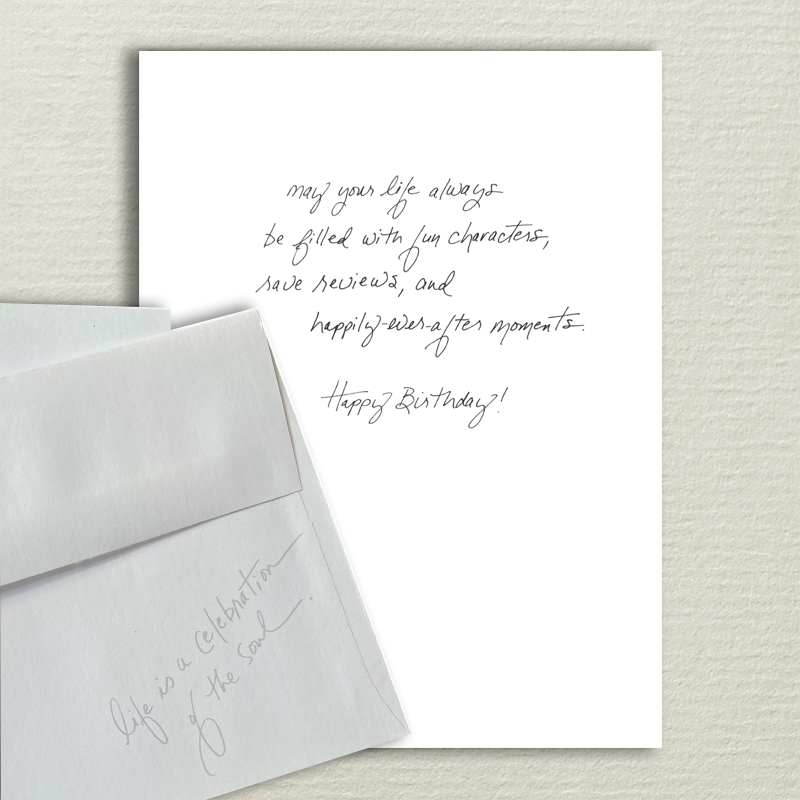 may your life always
be filled with fun characters,
rave reviews, and
happily-ever-after moments.
Happy Birthday!
life is a celebration
of the soul.